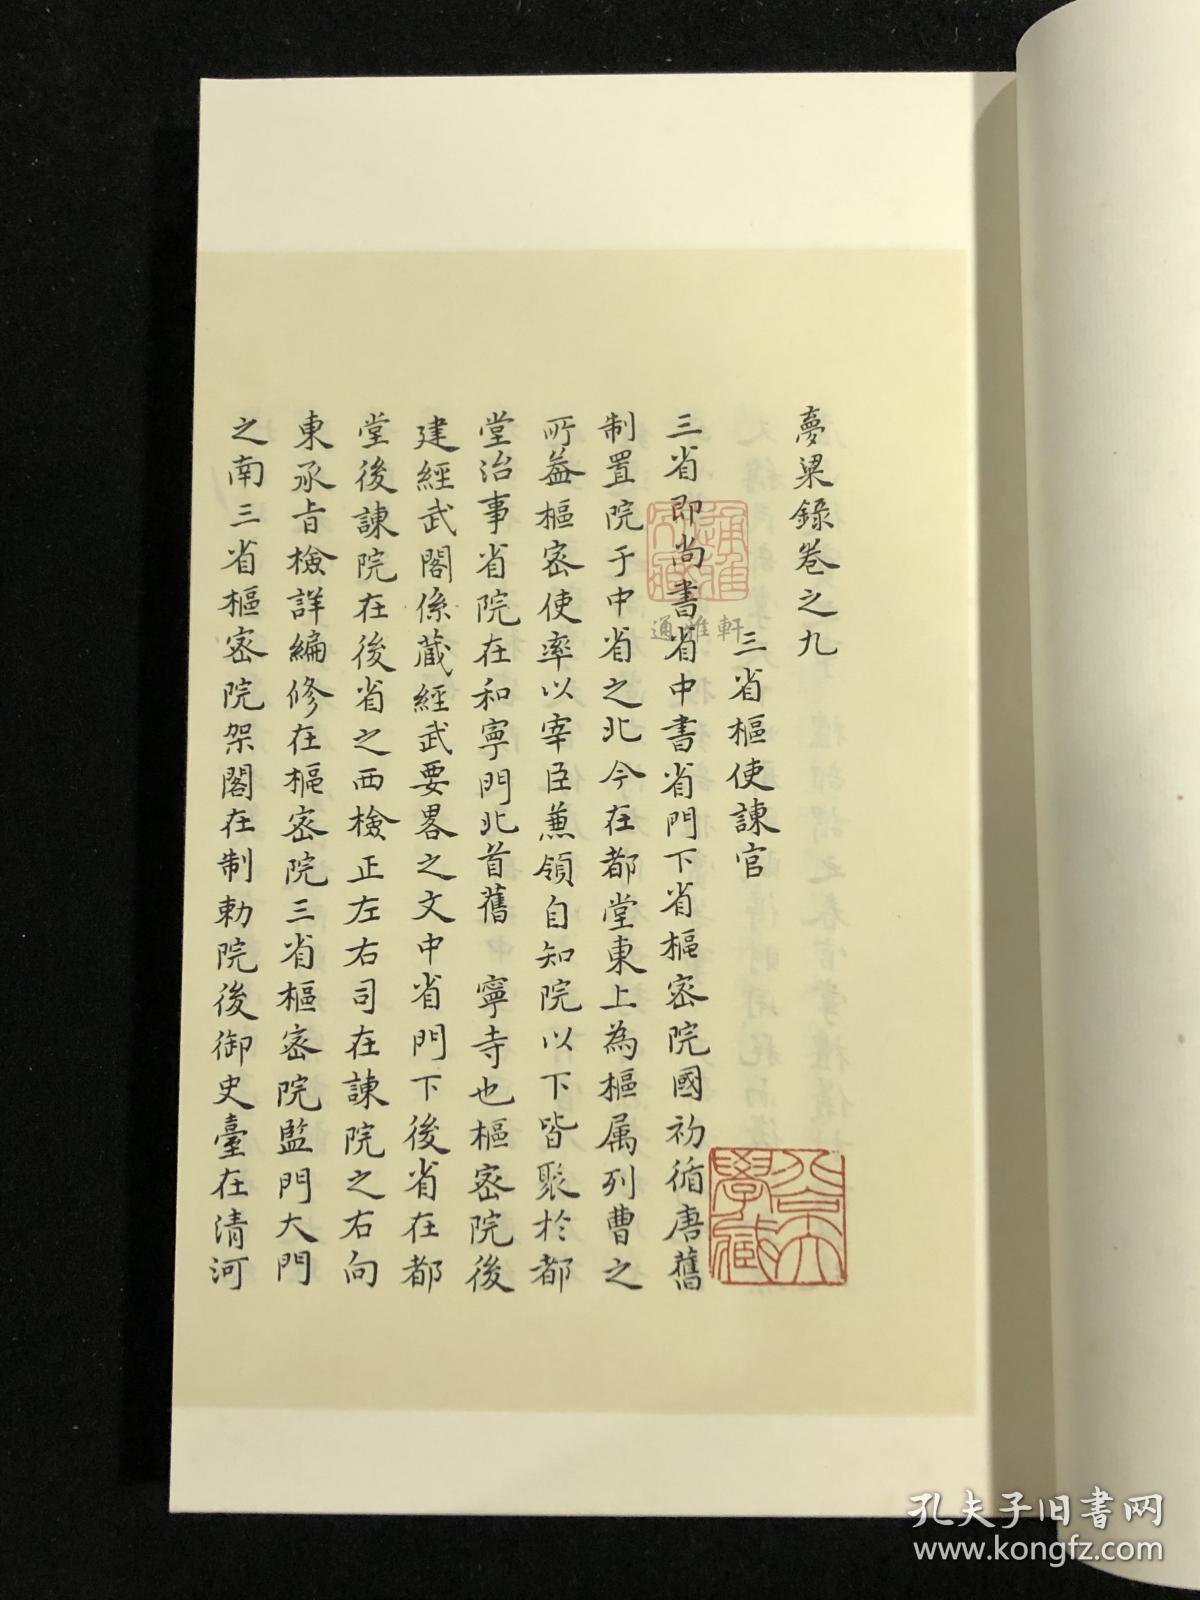 夢粱錄卷之九
三省樞使諫官
三省即尚書省中書省門下省樞密院國初循唐舊
制置院于中省之北今在都堂東上為樞属列曹之
所益樞密使率以宰臣兼領自知院以下皆聚於都
堂治事省院在和寧門北首舊 寧寺也樞密院後
建經武閣係蔵經武要畧之文中省門下後省在都
堂後諫院在後省之西檢正左右司在諫院之右向
東承旨檢詳編修在樞密院三省樞密院監門大門
之南三省樞密院架閣在制勅院後御史臺在清河
通雅軒
孔夫子旧书网
www.kongfz.com